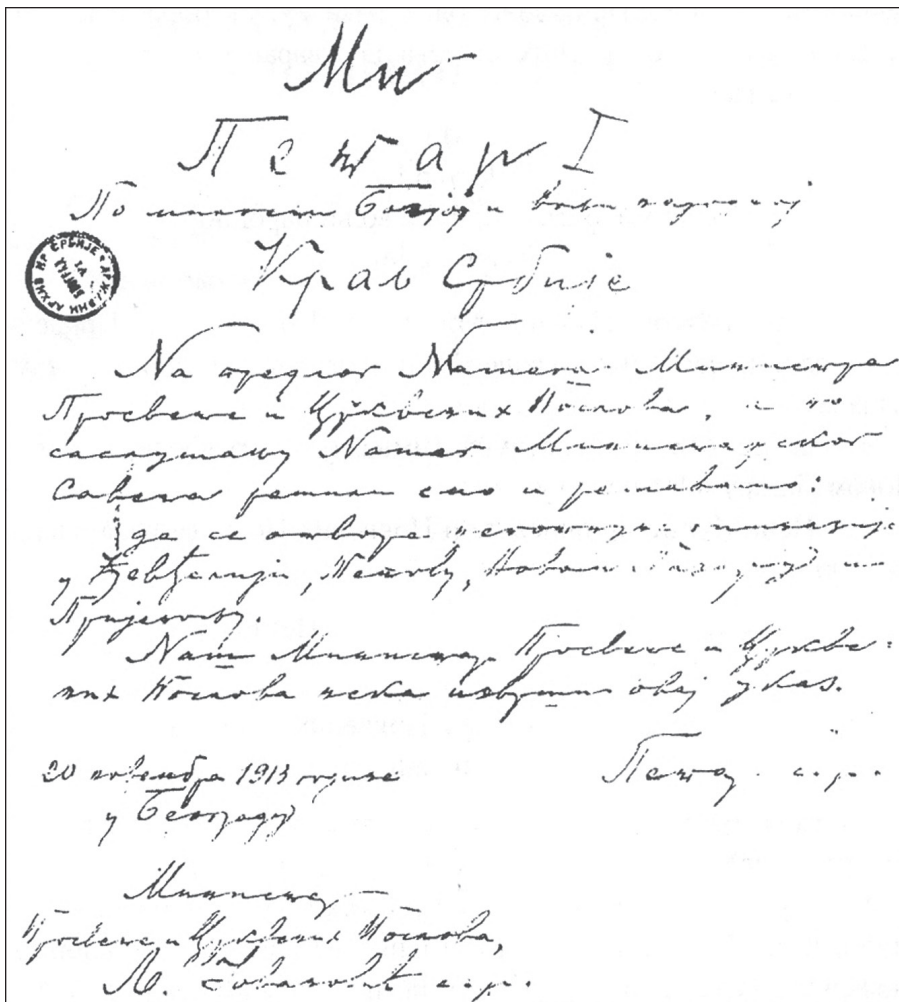 Ми
Петар I
По милости Божјој и вољи народној
Краљ Србије
НР СРБИЈЕ ДРЖАВНИ АРХИВ
На предлог Нашега Министра
Просвете и Црквених Послова, а по
саслушању Нашег Министарског
Савета решили смо и решавамо:
да се отворе непотпуне гимназије
у Ђевђелији, Тетову, Новом Пазару и
Пријепољу.
Наш Министар Просвете и Цркве-
них Послова нека изврши овај указ.
20 новембра 1913 године
у Београду
Петар с.р.
Министар
Просвете и Црквених Послова,
Љ. Јовановић с.р.